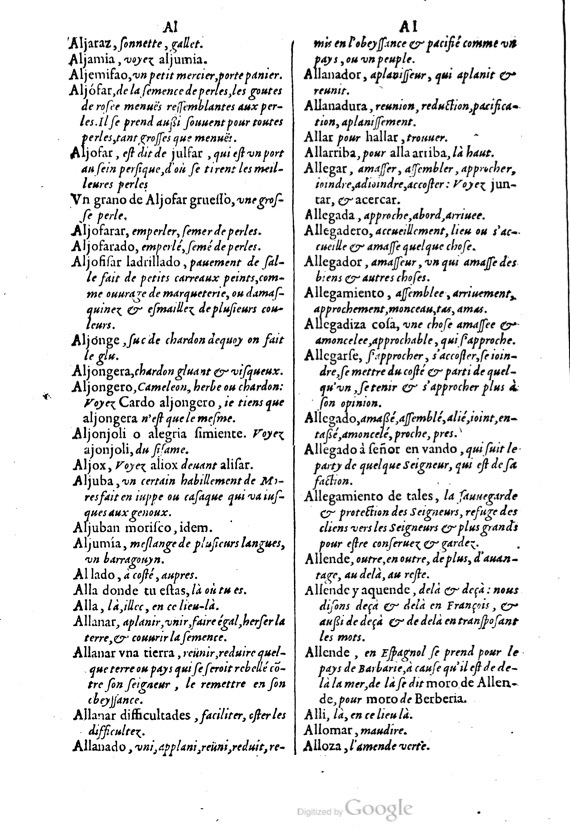 AI
Aljaraz, ſonnette, gallet.
Aljamia, voyez aljumia.
Aljemifao, vn petit mercier, porte panier.
Aljófar, de la ſemence de perles, les goutes
de roſee menuës reſſemblantes aux per-
les. Il ſe prend auſſi ſouuent pour toutes
perles, tant groſſes que menuës.
Aljofar, eſt dit de julfar, qui eſt vn port
au ſein perſique, d'où ſe tirent les meil-
leures perles
Vn grano de Aljofar grueſſo, vne groſ-
ſe perle.
Aljofarar, emperler, ſemer de perles.
Aljofarado, emperlé, ſemé de perles.
Aljofifar ladrillado, pauement de ſal-
le fait de petits carreaux peints, com-
me ouurage de marqueterie, ou damaſ-
quinez & eſmaillez de pluſieurs cou-
leurs.
Aljonge, ſuc de chardon dequoy on fait
le glu.
Aljongera, chardon gluant & viſqueux.
Aljongero, Cameleon, herbe ou chardon:
Voyez Cardo aljongero, ie tiens que
aljongera n'eſt que le meſme.
Aljonjoli o alegria ſimiente. Voyez
ajonjoli, du ſiſame.
Aljox, Voyez aliox deuant aliſar.
Aljuba, vn certain habillement de Mo-
res fait en iuppe ou caſaque qui va iuſ-
ques aux genoux.
Aljuban moriſco, idem.
Aljumia, meſlange de pluſieurs langues,
vn barragouyn.
Al lado, à coſté, aupres.
Alla donde tu eſtas, là où tu es.
Alla, là, illec, en ce lieu-là.
Allanar, aplanir, vnir, faire égal, herſer la
terre, & couurir la ſemence.
Allanar vna tierra, reünir, reduire quel-
que terre ou pays qui ſe ſeroit rebellé cõ-
tre ſon ſeigneur, le remettre en ſon
obeyſſance.
Allanar difficultades, faciliter, oſter les
difficultez.
Allanado, vni, applani, reüni, reduit, re-
AI
mis en l'obeyſſance & pacifié comme vn
pays, ou vn peuple.
Allanador, aplaniſſeur, qui aplanit &
reunit.
Allanadura, reunion, reduction, pacifica-
tion, aplaniſſement.
Allar pour hallar, trouuer.
Allarriba, pour alla arriba, là haut.
Allegar, amaſſer, aſſembler, approcher,
ioindre, adioindre, accoſter: Voyez jun-
tar, & acercar.
Allegada, approche, abord, arriuee.
Allegadero, accueillement, lieu ou s'ac-
cueille & amaſſe quelque choſe.
Allegador, amaſſeur, vn qui amaſſe des
biens & autres choſes.
Allegamiento, aſſemblee, arriuement,
approchement, monceau, tas, amas.
Allegadiza coſa, vne choſe amaſſee &
amoncelee, approchable, qui s'approche.
Allegarſe, s'approcher, s'accoſter, ſe ioin-
dre, ſe mettre du coſté & parti de quel-
qu'vn, ſe tenir & s'approcher plus à
ſon opinion.
Allegado, amaſſé, aſſemblé, alié, ioint, en-
taſſé, amoncelé, proche, pres.
Allegado à ſeñor en vando, qui ſuit le
party de quelque Seigneur, qui eſt de ſa
faction.
Allegamiento de tales, la ſauuegarde
& protection des Seigneurs, refuge des
cliens vers les Seigneurs & plus grands
pour eſtre conſeruez & gardez.
Allende, outre, en outre, de plus, d'auan-
tage, au delà, au reſte.
Allende y aquende, delà & deçà: nous
diſons deçà & delà en François, &
auſſi de deçà & de delà en tranſpoſant
les mots.
Allende, en Eſpagnol ſe prend pour le
pays de Barbarie, à cauſe qu'il eſt de de-
là la mer, de là ſe dit moro de Allen-
de, pour moro de Berberia.
Alli, là, en ce lieu là.
Allomar, maudire.
Alloza, l'amende verte.
Digitized by Google